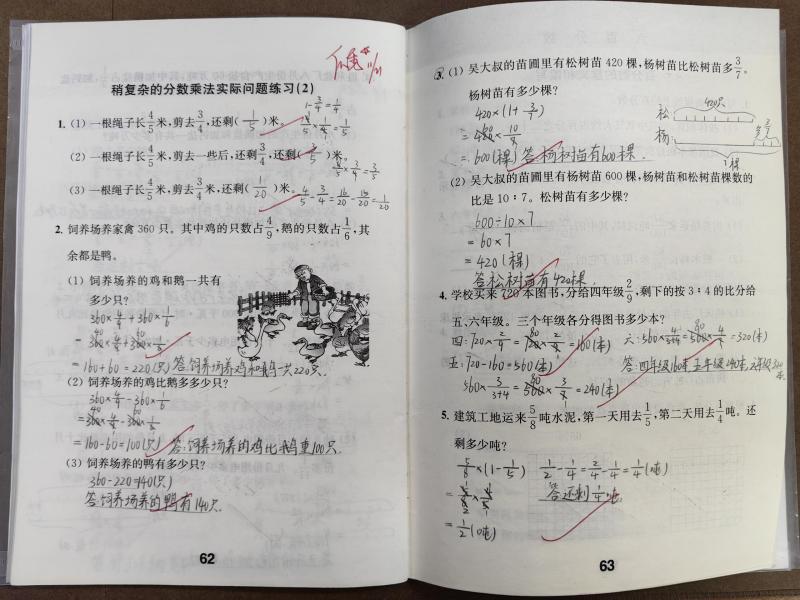 稍复杂的分数乘法实际问题练习(2)
1-3/4=1/4
1. (1) 一根绳子长4/5米,剪去3/4,还剩(1/5)米。
4/5×1/4=1/5
(2) 一根绳子长4/5米,剪去一些后,还剩3/4,还剩(3/5)米。
4/5×3/4=3/5
(3) 一根绳子长4/5米,剪去3/4米,还剩(1/20)米。
4/5-3/4=16/20-15/20=1/20
2. 饲养场养家禽 360 只。其中鸡的只数占4/9,鹅的只数占1/6,其
余都是鸭。
(1) 饲养场养的鸡和鹅一共有
多少只?
360×4/9+360×1/6
=360×4/9+360×1/6
=160+60=220(只) 答:饲养场养的鸡和鹅一共220只.
(2) 饲养场养的鸡比鹅多多少只?
360×4/9-360×1/6
=360×4/9-360×1/6
=160-60=100(只) 答:饲养场养的鸡比鹅多100只.
(3) 饲养场养的鸭有多少只?
360-220=140(只)
答饲养场养的鸭有140只.
62
3. (1) 吴大叔的苗圃里有松树苗 420 棵,杨树苗比松树苗多3/7。
杨树苗有多少棵?
420×(1+3/7)
=420×10/7
=600(棵) 答杨树苗有600棵.
松
420只
杨
多3/7
?棵
(2) 吴大叔的苗圃里有杨树苗 600 棵,杨树苗和松树苗棵数的
比是 10∶7。松树苗有多少棵?
600÷10×7
=60×7
=420(棵)
答松树苗有420棵.
4. 学校买来 720 本图书,分给四年级2/9,剩下的按 3∶4 的比分给
五、六年级。三个年级各分得图书多少本?
四:720×2/9=720×2/9=160(本) 六:560×4/3+4=560×4/7=320(本)
五:720-160=560(本) 答:四年级160本五年级240本,六年级320本.
560×3/3+4=560×3/7=240(本)
5. 建筑工地运来5/8吨水泥,第一天用去1/5,第二天用去1/4吨。还
剩多少吨?
5/8×(1-1/5) 1/2-1/4=2/4-1/4=1/4(吨)
=5/8×4/5 答还剩1/4吨.
=1/2(吨)
63